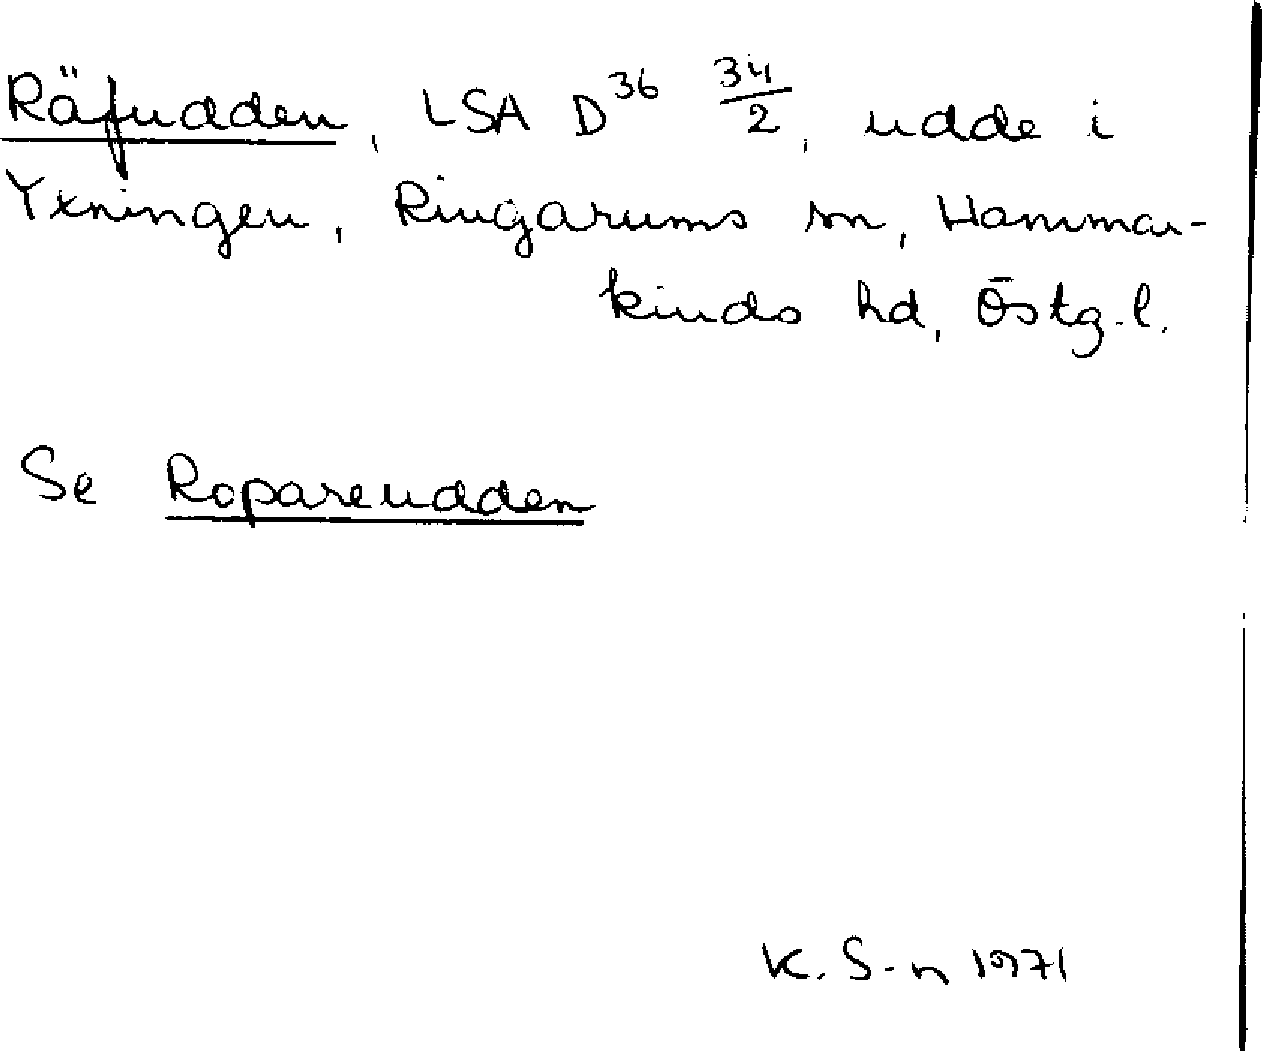 Räfudden, LSA D³⁶ 34/2, udde i
Yxningen, Ringarums sn, Hammar-
kinds hd, Östg.l.
Se Ropareudden
K. S-n 1971